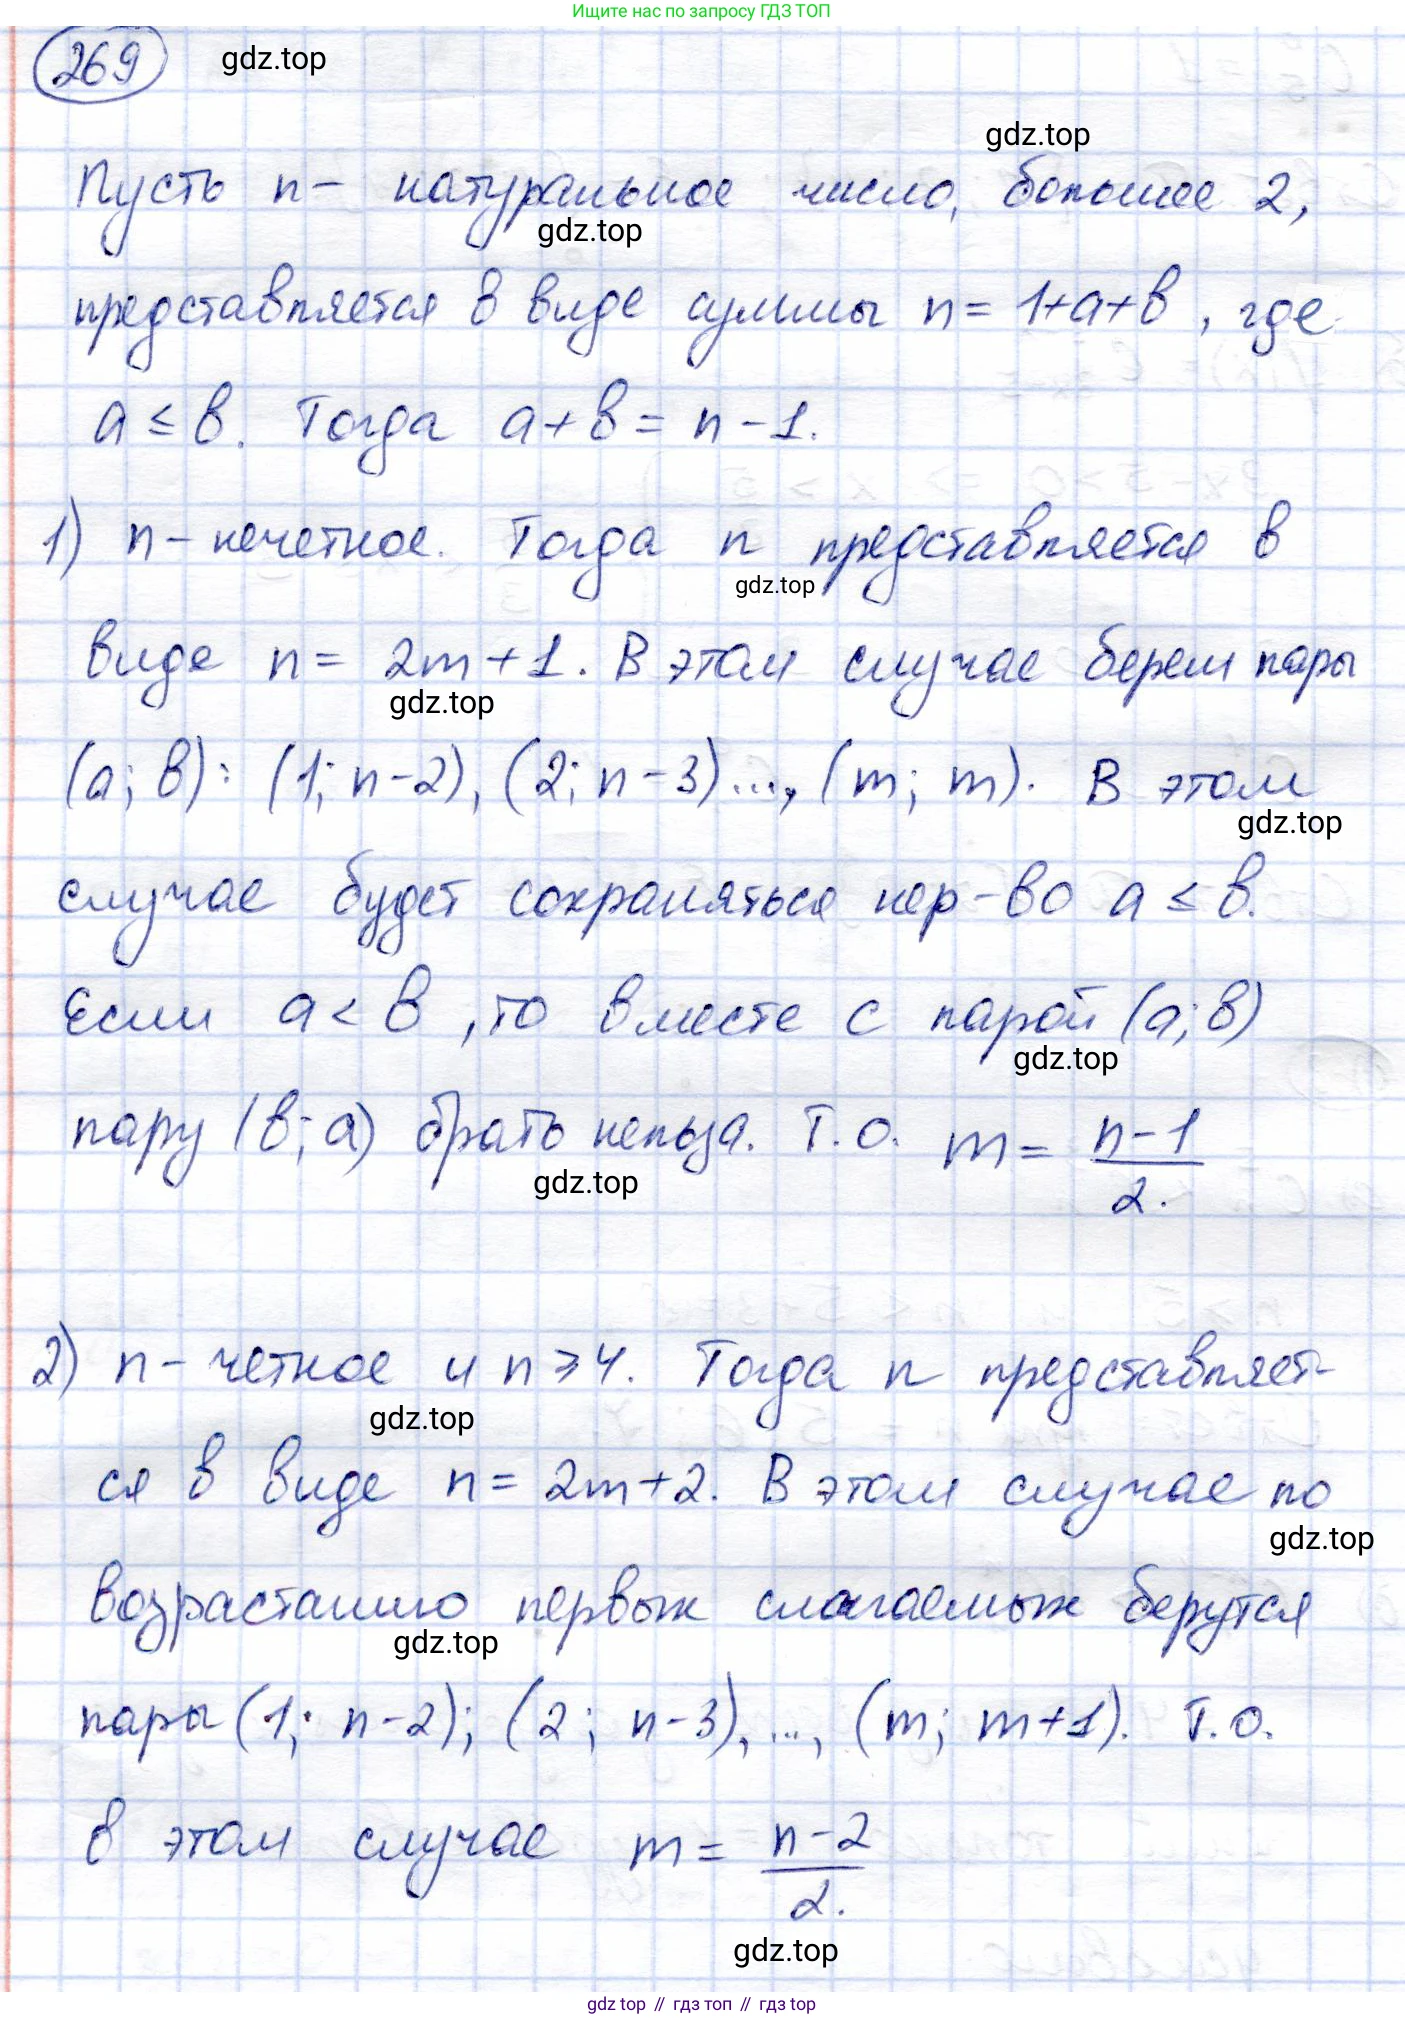 Ищите нас по запросу ГДЗ ТОП
269 gdz.top
gdz.top
Пусть n – натуральное число, большее 2,
gdz.top
представляется в виде суммы n = 1+a+b, где
a ≤ b. Тогда a + b = n - 1.
1) n – нечетное. Тогда n представляется в
gdz.top
виде n = 2m + 1. В этом случае берем пары
gdz.top
(a; b): (1; n-2), (2; n-3)..., (m; m). В этом
gdz.top
случае будет сохраняться нер-во a ≤ b.
Если a < b, то вместе с парой (a; b)
gdz.top
пару (b; a) брать нельзя. Т.о. m = n-1/2.
gdz.top
2) n – четное и n ⩾ 4. Тогда n представляет-
gdz.top
ся в виде n = 2m+2. В этом случае по
gdz.top
возрастанию первых слагаемых берутся
gdz.top
пары (1; n-2); (2; n-3), ..., (m; m+1). Т.о.
в этом случае m = n-2/2.
gdz.top
gdz top // гдз топ // гдз top